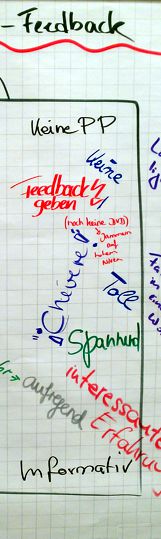 -Feedback
Keine PP
Keine
Feedback
geben
(noch keine
Jammern
auf
hohem
Chévere
Toll
Spannend
interessante
Erfahrung
aufregend
Informativ